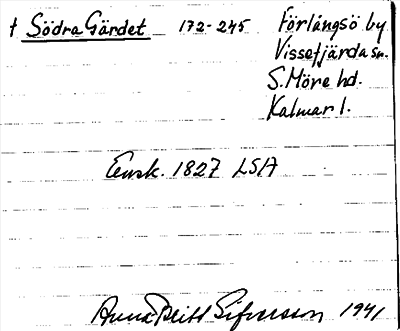 † Södra Gärdet 172-245 Förlångsö by
Vissefjärda sn.
S. Möre hd.
Kalmar l.
Ensk. 1827 LSA
Anna Britt Sifversson 1941